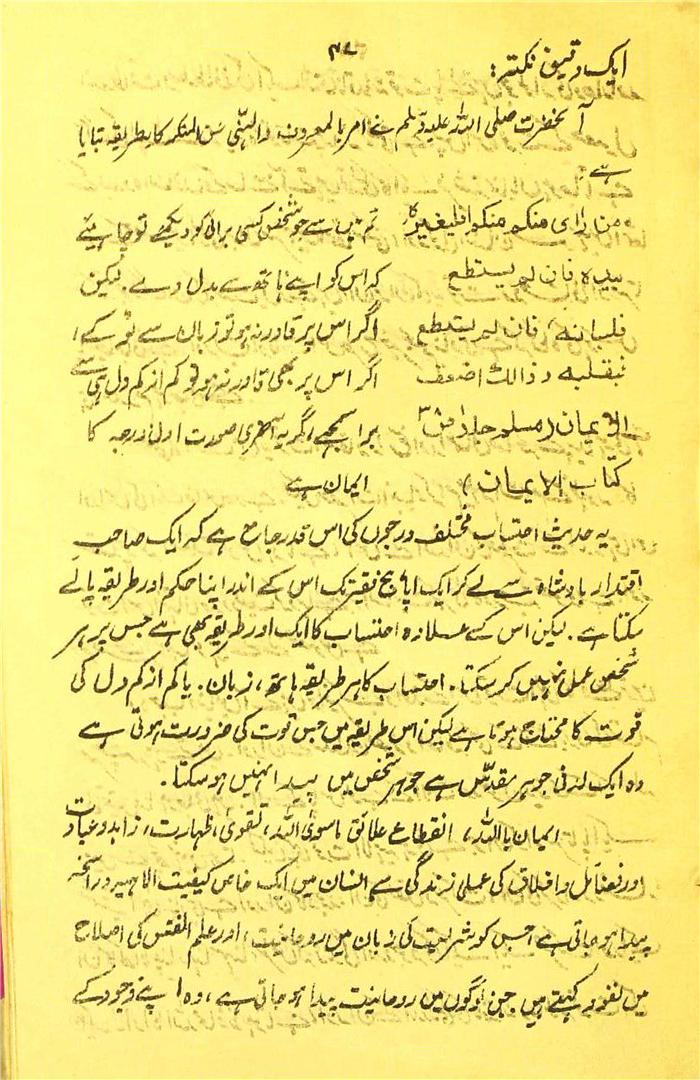 ۴۷
ایک دقیق نکتہ:
آنحضرت صلی اللہ علیہ وسلم نے امر بالمعروف والنہی عن المنکر کا یہ طریقہ بتایا
ہے:
من رای منکم منکم افلیغیرہ تم میں سے جو شخص کسی برائی کو دیکھے تو چاہیئے
بیدہ فان لم یستطع کہ اس کو اپنے ہاتھ سے بدل دے۔ لیکن
فلسانہ، فان لم یستطع اگر اس پر قادر نہ ہو تو زبان سے ٹوکے،
فبقلبہ وذالک اضعف اگر اس پر بھی قادر نہ ہو تو کم از کم دل ہی سے
الایمان (مسلم جلد۱ ص۳ برا سمجھے اگر یہ آخری صورت اولیٰ درجہ کا
کتاب الایمان) ایمان ہے
یہ حدیث احتساب مختلف درجوں کی اس قدر جامع ہے کہ ایک صاحب
اقتدار بادشاہ سے لے کر ایک اپاہج فقیر تک اس کے اندر اپنا حکم اور طریقہ پالے
سکتا ہے۔ لیکن اس کے علاوہ احتساب کا ایک اور طریقہ بھی ہے جس پر ہر
شخص عمل نہیں کر سکتا۔ احتساب کا ہر طریقہ ہاتھ، زبان۔ یا کم از کم دل کی
قوت کا محتاج ہوتا ہے لیکن اس طریقہ میں جس قوت کی ضرورت ہوتی ہے
وہ ایک لدنی جوہر مقدس ہے جو ہر شخص میں پیدا نہیں ہو سکتا۔
ایمان باللہ، انقطاع علائق ماسوی اللہ، تقویٰ، طہارت، زاہد و عبادت
اور فضائل و اخلاق کی عملی زندگی سے انسان میں ایک خاص کیفیت الاہیہ و راسخہ
پیدا ہو جاتی ہے جس کو شریعت کی زبان میں روحانیت، اور علم النفس کی اصلاح
میں نفوذ کہتے ہیں۔ جن لوگوں میں روحانیت پیدا ہو جاتی ہے، وہ اپنے وجود کے